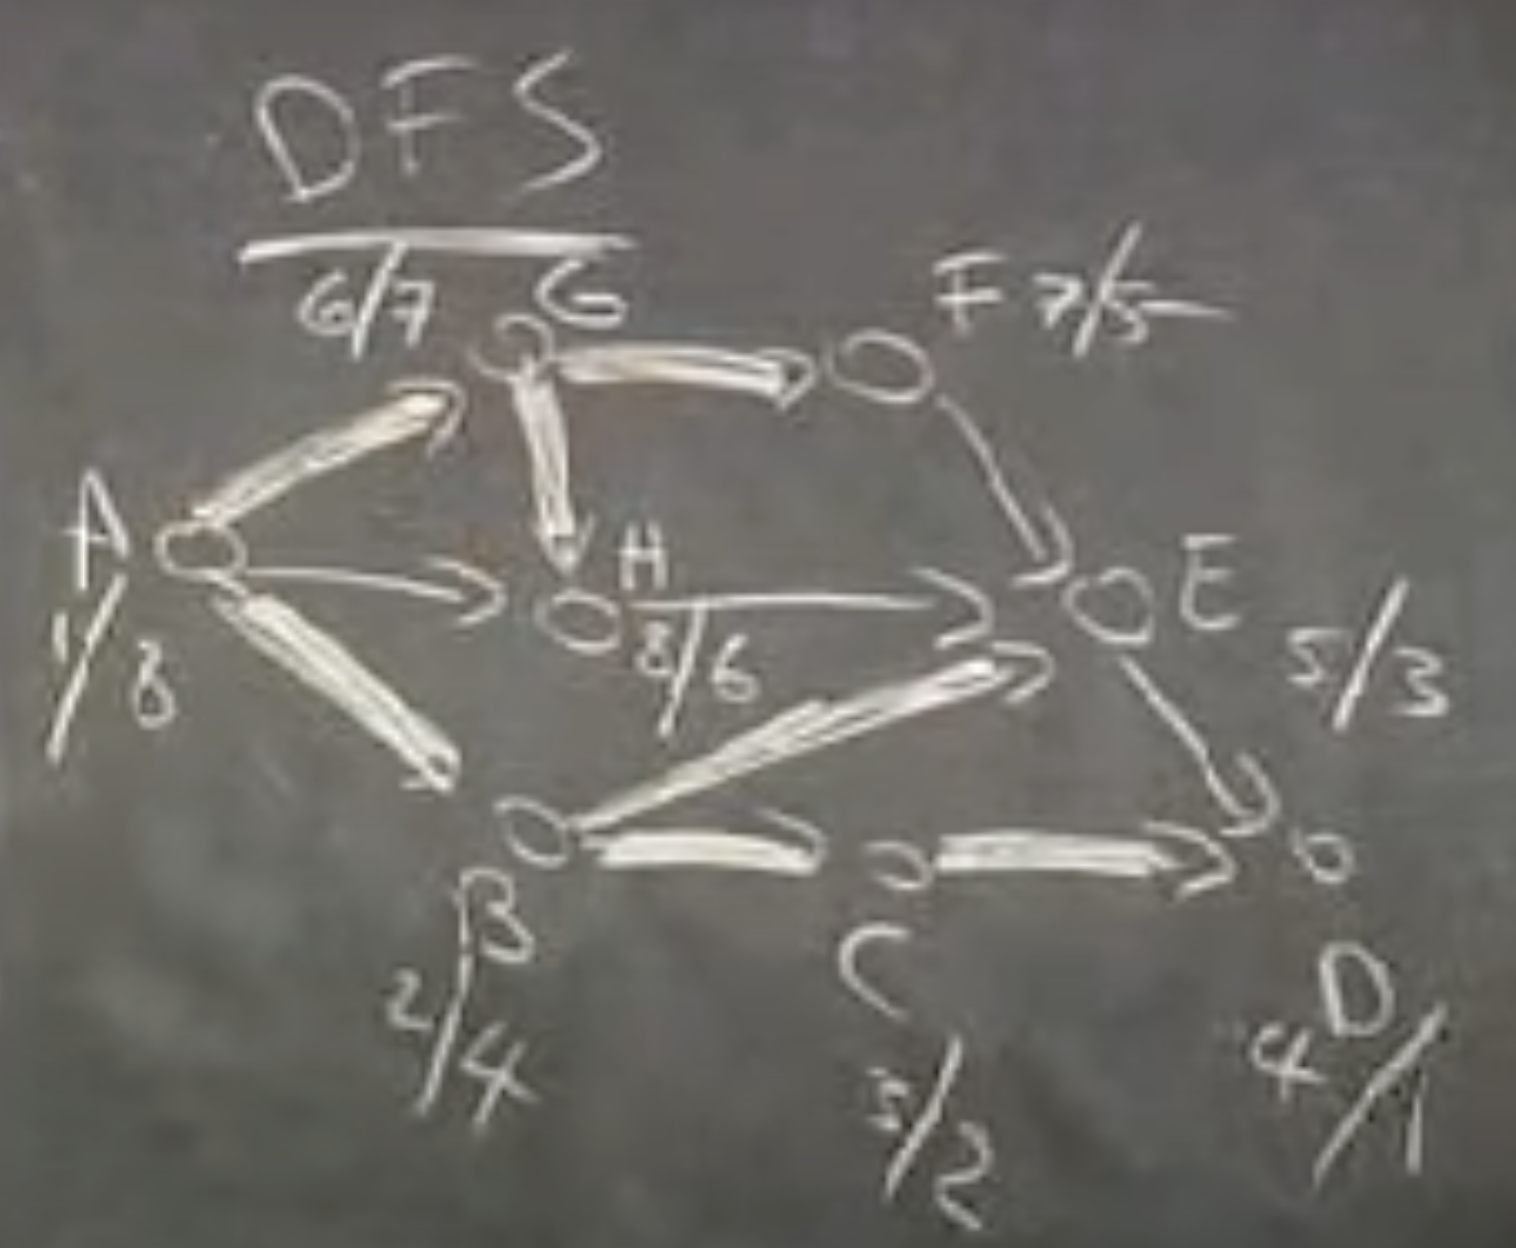 DFS
6/7 G
F 7/5
A
1/8
H
8/6
E
5/3
B
2/4
C
3/2
D
4/1